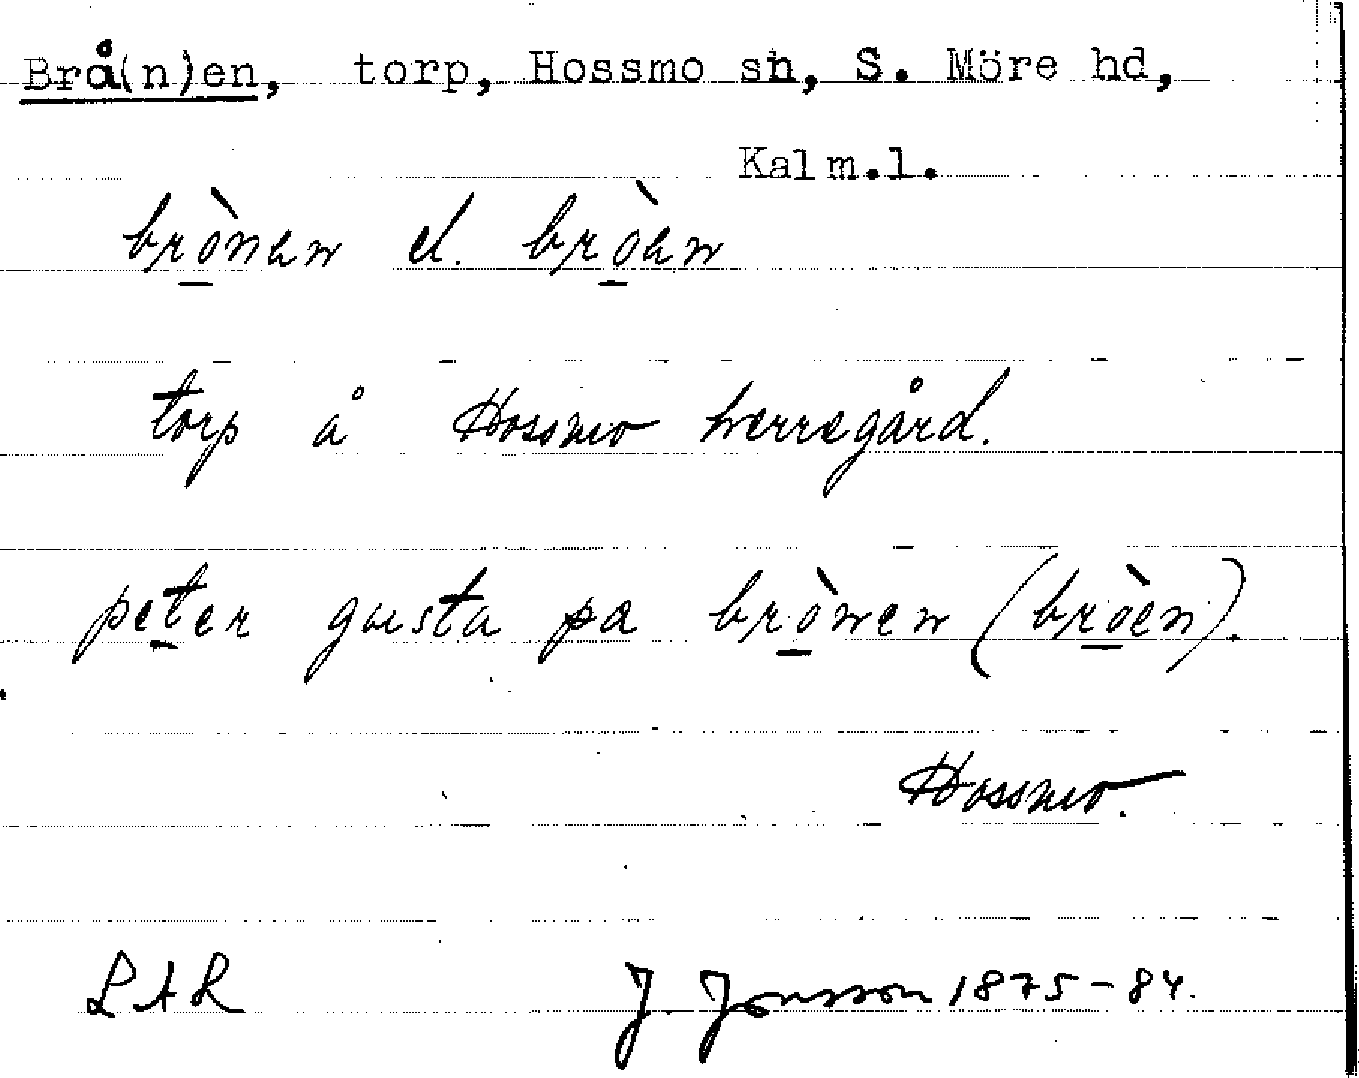 Brå(n)en, torp, Hossmo sn, S. Möre hd,
Kalm.l.
brònen el. bròen
torp å Hossmo herregård.
peter gusta pa brònen (bròen).
Hossmo.
LAR J Jonsson 1875-84.